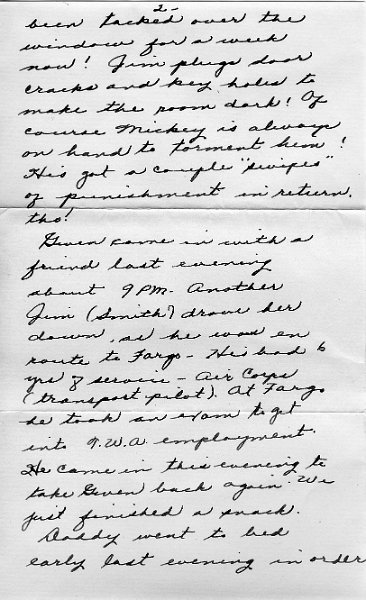 2-
been tacked over the
window for a week
now! Jim plugs door
cracks and key holes to
make the room dark! Of
course Mickey is always
on hand to torment him!
He's got a couple "swipes"
of punishment in return,
tho!
Gwen came in with a
friend last evening
about 9 PM. Another
Jim (Smith) drove her
down, as he was en
route to Fargo - He's had 6
yrs of service - Air Corps
(transport pilot). At Fargo
he took an exam to get
into T.W.A employment.
He came in this evening to
take Gwen back again. We
just finished a snack.
Daddy went to bed
early last evening in order